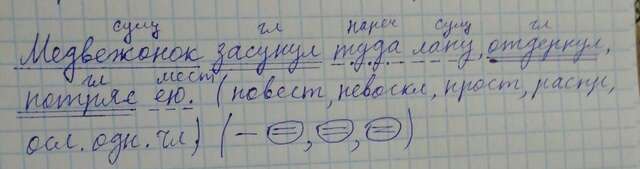 сущ гл нареч сущ гл
Медвежонок засунул туда лапу, отдернул,
гл мест
потряс ею. (повест, невоскл, прост, распр,
осл. одн. чл.) (– =, =, =)